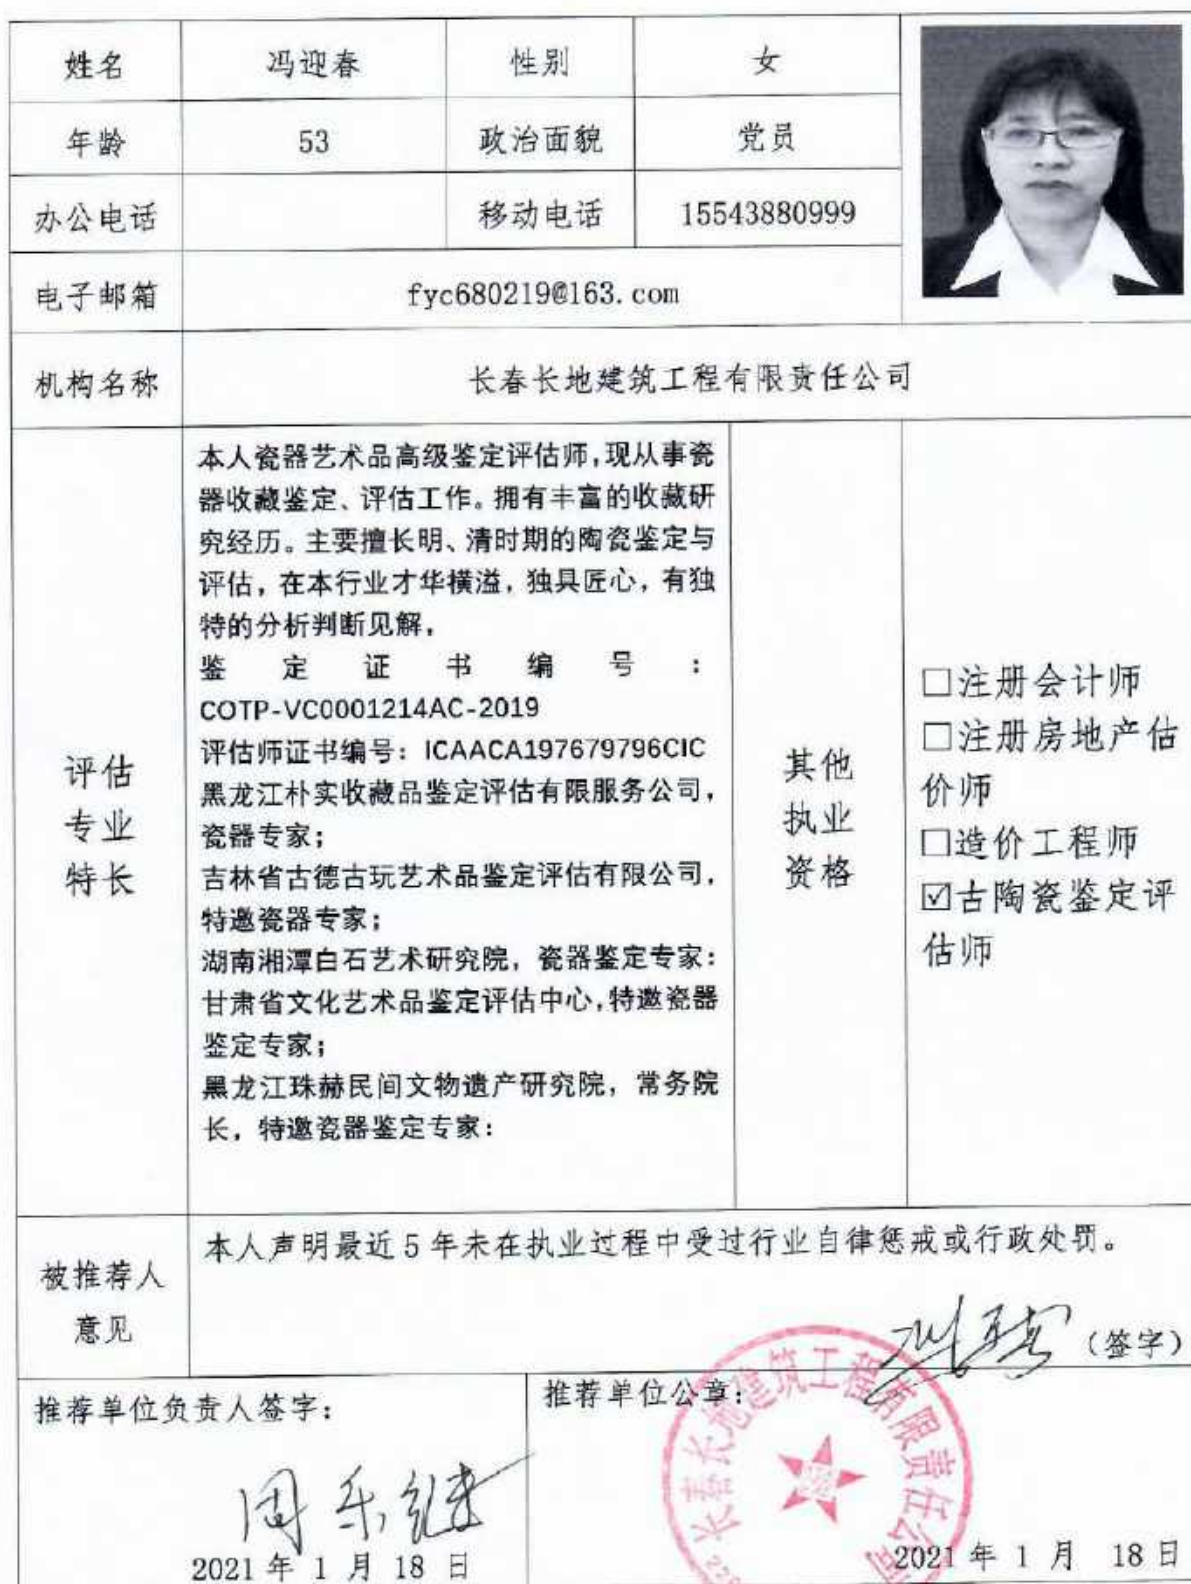 姓名 冯迎春 性别 女
年龄 53 政治面貌 党员
办公电话 移动电话 15543880999
电子邮箱 fyc680219@163.com
机构名称 长春长地建筑工程有限责任公司
评估
专业
特长
本人瓷器艺术品高级鉴定评估师,现从事瓷
器收藏鉴定、评估工作。拥有丰富的收藏研
究经历。主要擅长明、清时期的陶瓷鉴定与
评估，在本行业才华横溢，独具匠心，有独
特的分析判断见解，
鉴定证书编号：
COTP-VC0001214AC-2019
评估师证书编号：ICAACA197679796CIC
黑龙江朴实收藏品鉴定评估有限服务公司，
瓷器专家；
吉林省古德古玩艺术品鉴定评估有限公司，
特邀瓷器专家；
湖南湘潭白石艺术研究院，瓷器鉴定专家：
甘肃省文化艺术品鉴定评估中心,特邀瓷器
鉴定专家；
黑龙江珠赫民间文物遗产研究院，常务院
长，特邀瓷器鉴定专家：
其他
执业
资格
□注册会计师
□注册房地产估
价师
□造价工程师
☑古陶瓷鉴定评
估师
被推荐人
意见
本人声明最近5年未在执业过程中受过行业自律惩戒或行政处罚。
（签字）
推荐单位负责人签字：
2021年 1 月 18 日
推荐单位公章：
长春长地建筑工程有限责任公司
2021年 1 月 18日